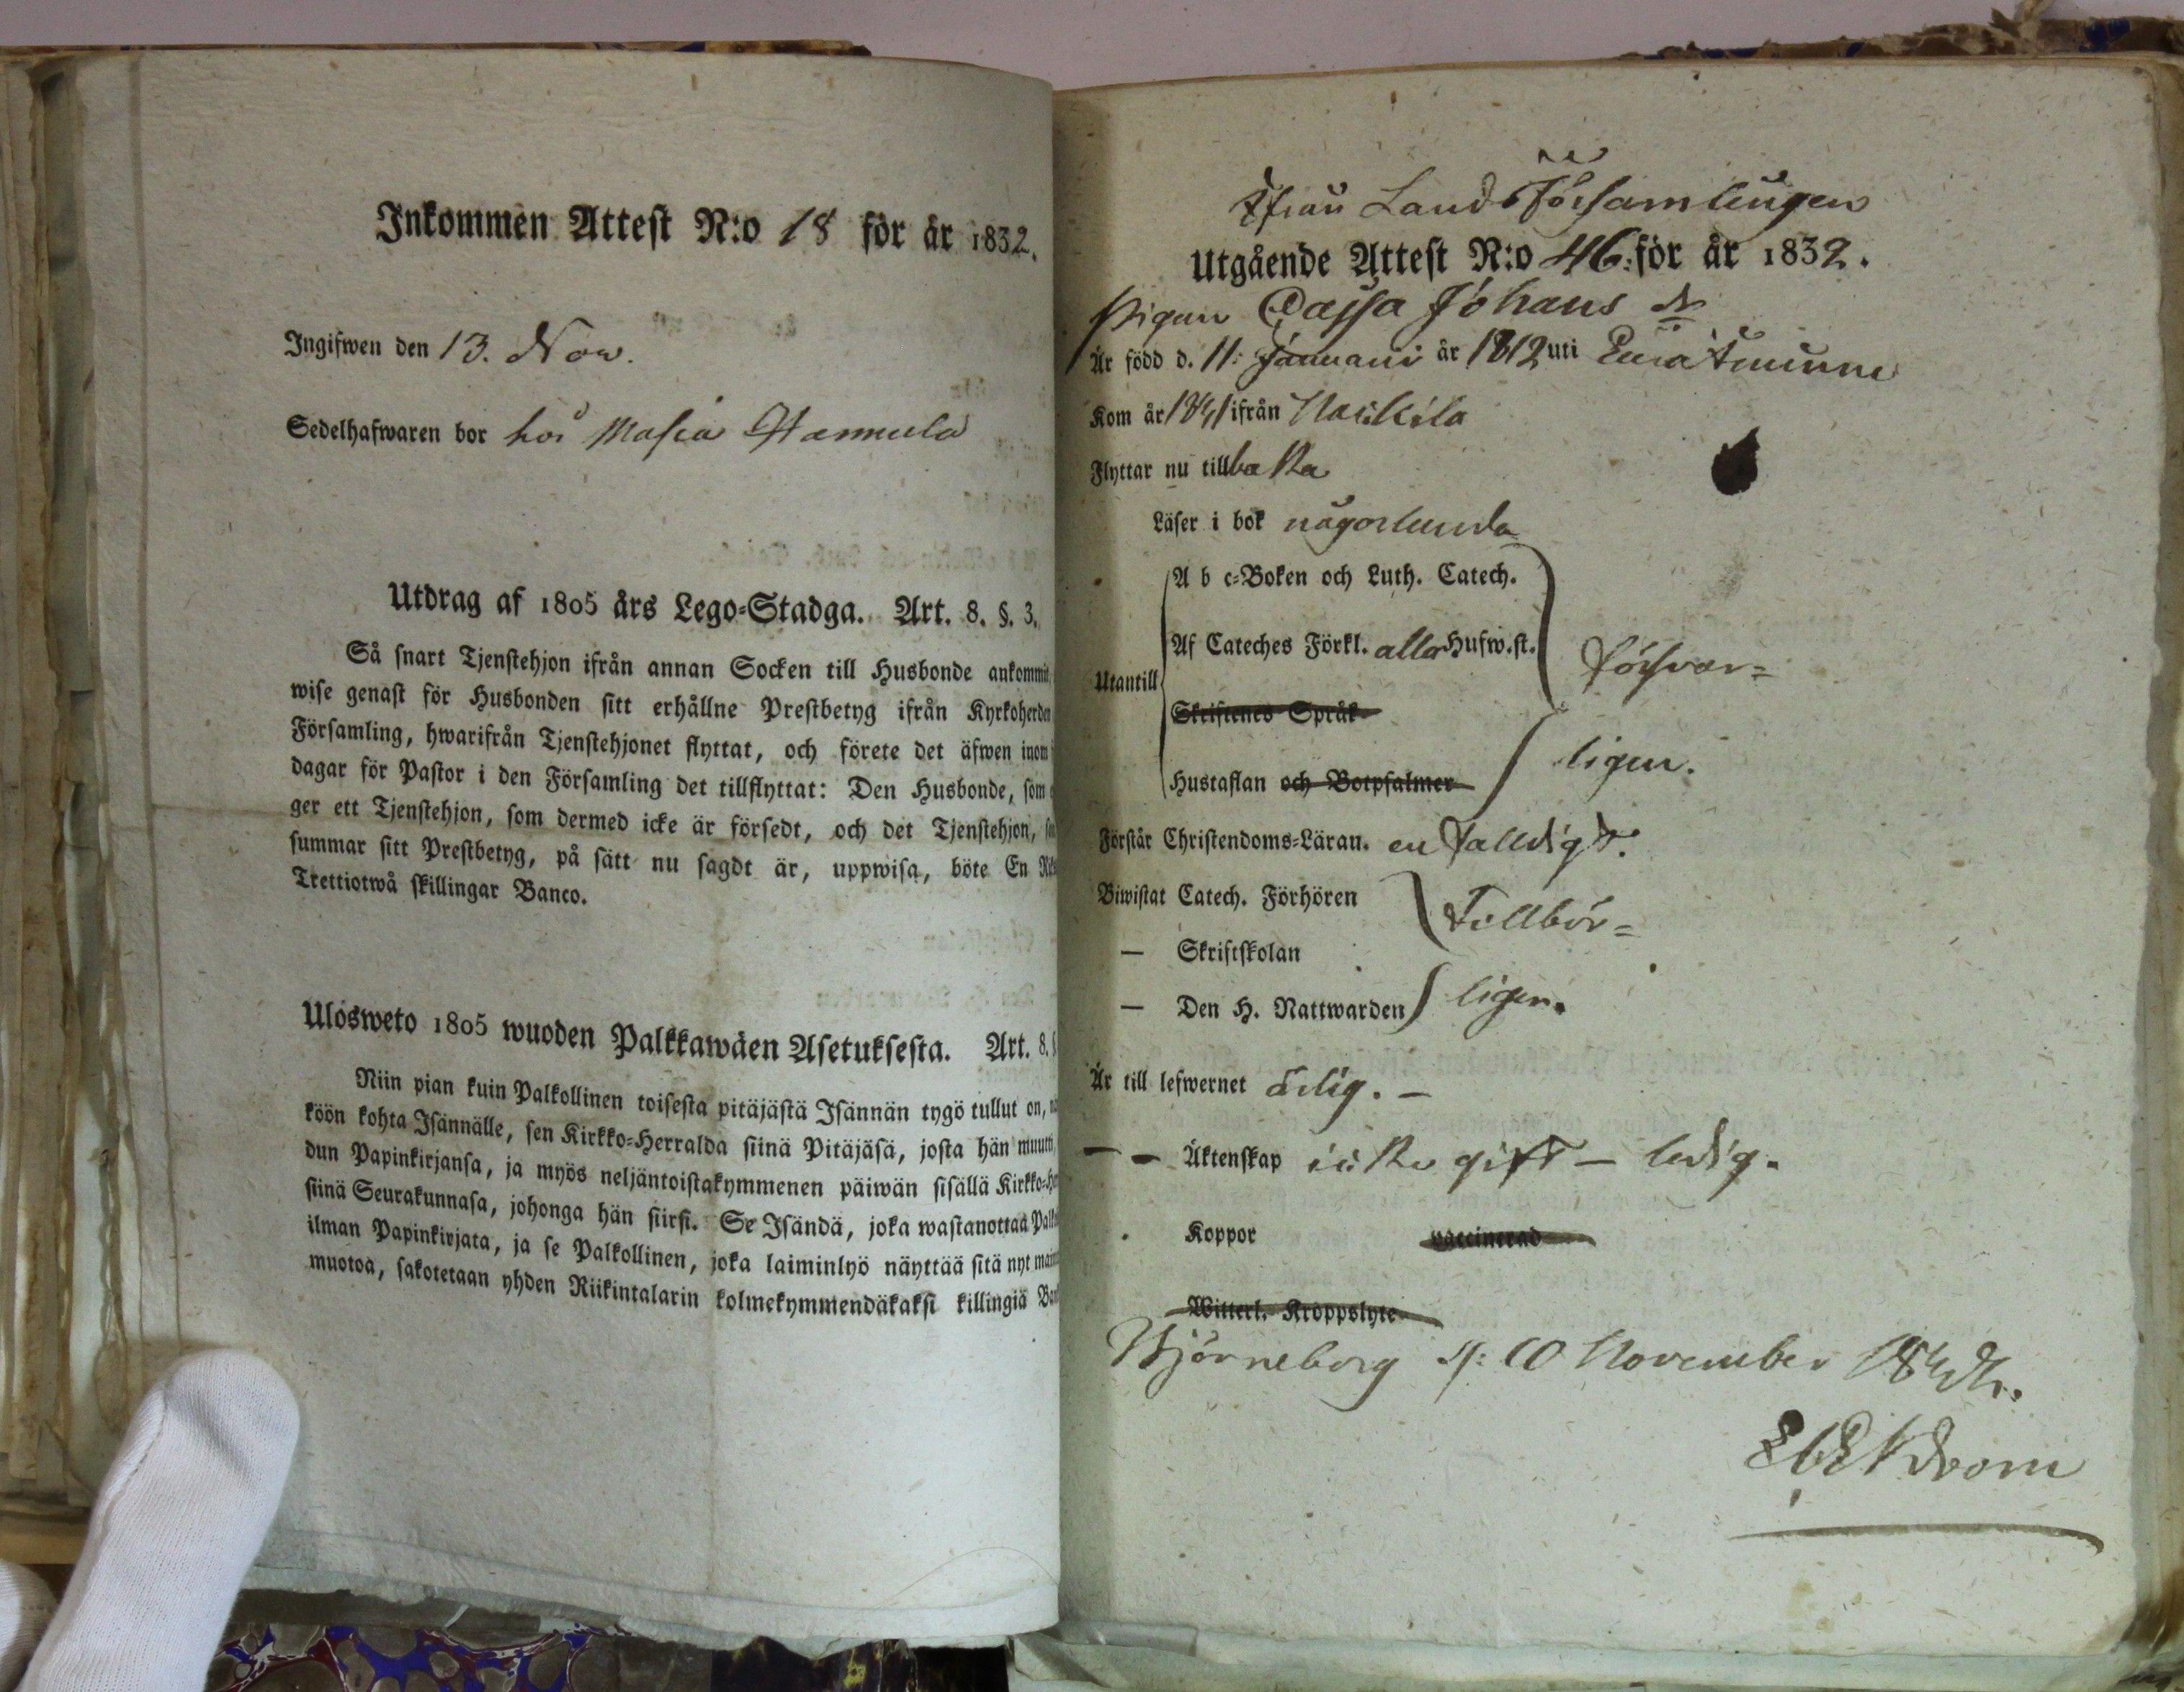 Inkommen Attest N:o 18 för år 1832.
Ingifwen den 13. Nov.
Sedelhafwaren bor hos Masia Hannula
Utdrag af 1805 års Lego-Stadga. Art. 8. §. 3.
Så snart Tjenstehjon ifrån annan Socken till Husbonde ankommit,
wise genast för Husbonden sitt erhållne Prestbetyg ifrån Kyrkoherden
Församling, hwarifrån Tjenstehjonet flyttat, och förete det äfwen inom
dagar för Pastor i den Församling det tillflyttat: Den Husbonde, som
ger ett Tjenstehjon, som dermed icke är försedt, och det Tjenstehjon,
summar sitt Prestbetyg, på sätt nu sagdt är, uppwisa, böte En
Trettiotwå skillingar Banco.
Ulosweto 1805 wuoden Palkkawäen Asetuksesta. Art. 8.
Niin pian kuin Palkollinen toisesta pitäjästä Isännän tygö tullut on,
köön kohta Isännälle, sen Kirkko-Herralda siinä Pitäjäsä, josta hän muutt
dun Papinkirjansa, ja myös neljäntoistakymmenen päiwän sisällä Kirkko-
siinä Seurakunnasa, johonga hän siirsi. Se Isändä, joka wastanottaa
ilman Papinkirjata, ja se Palkollinen, joka laiminlyö näyttää sitä nyt
muotoa, sakotetaan yhden Riikintalarin kolmekymmendäkaksi killingiä
Ifrån Lands Församlingen
Utgående Attest N:o 46: för år 1832.
Pigan Cajsa Johans dr
Är född d. 11: Januarii år 1812 uti Euraåminne
Kom år 1831 ifrån Nackila
Flyttar nu tillbaka
Läser i bok någorlunda
A b c-Boken och Luth. Catech.
Af Cateches Förkl. alla Hufw.st.
försvar=
Utantill
Skriftenes Språk
ligen.
Hustaflan och Botpsalmer
Förstår Christendoms-Läran. enfalldigt.
Biwistat Catech. Förhören
Tillbör=
— Skriftskolan
— Den H. Nattwarden ligen.
Är till lefwernet ärlig. —
— — Äktenskap icke gift — ledig.
Koppor vaccinerad
Witterl. Kroppslyte
Björneborg d: 10 November 1832.